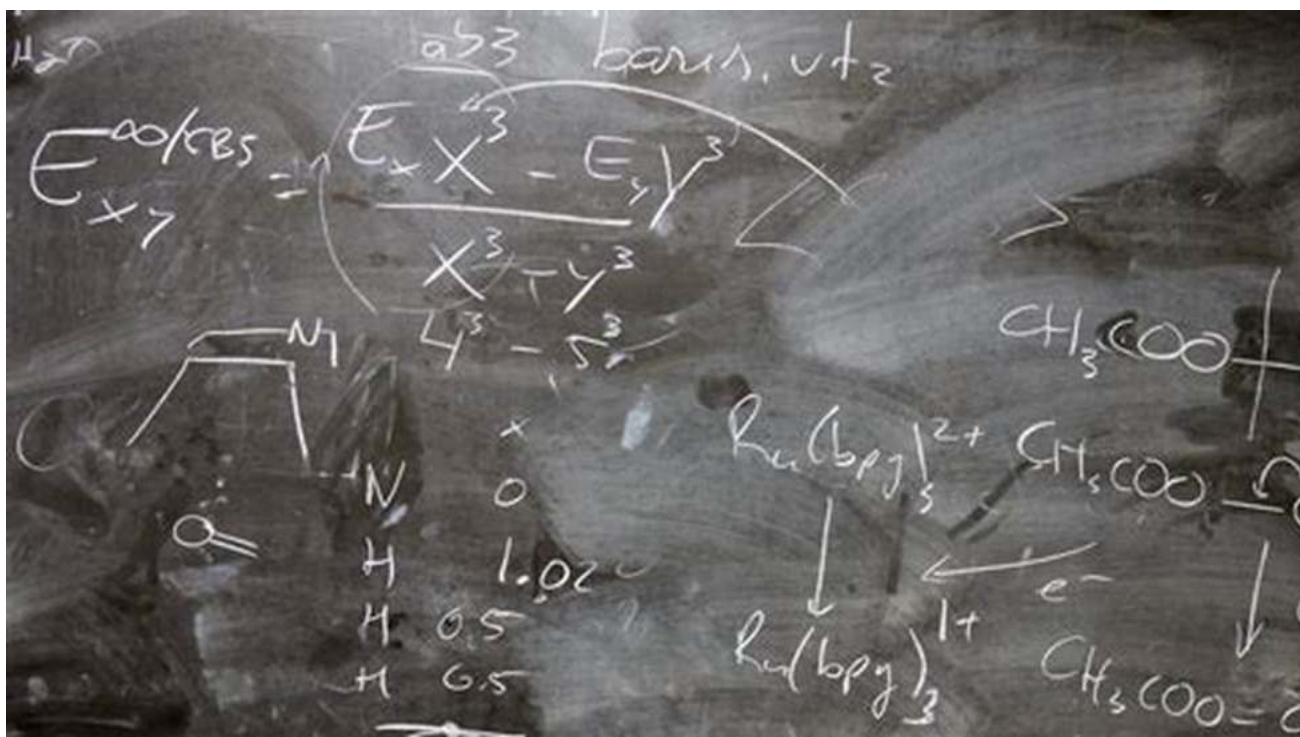 H₂O
ab3 basis, vtz
E_{xy}^{∞/CBS} = (E_x X³ - E_y Y³) / (X³ - Y³)
4³ - 5³
N
x
N 0
H 1.02
H 0.5
H 0.5
O
CH₃COO
Ru(bpy)₃²⁺
CH₃COO -
e⁻
Ru(bpy)₃¹⁺
CH₃COO =